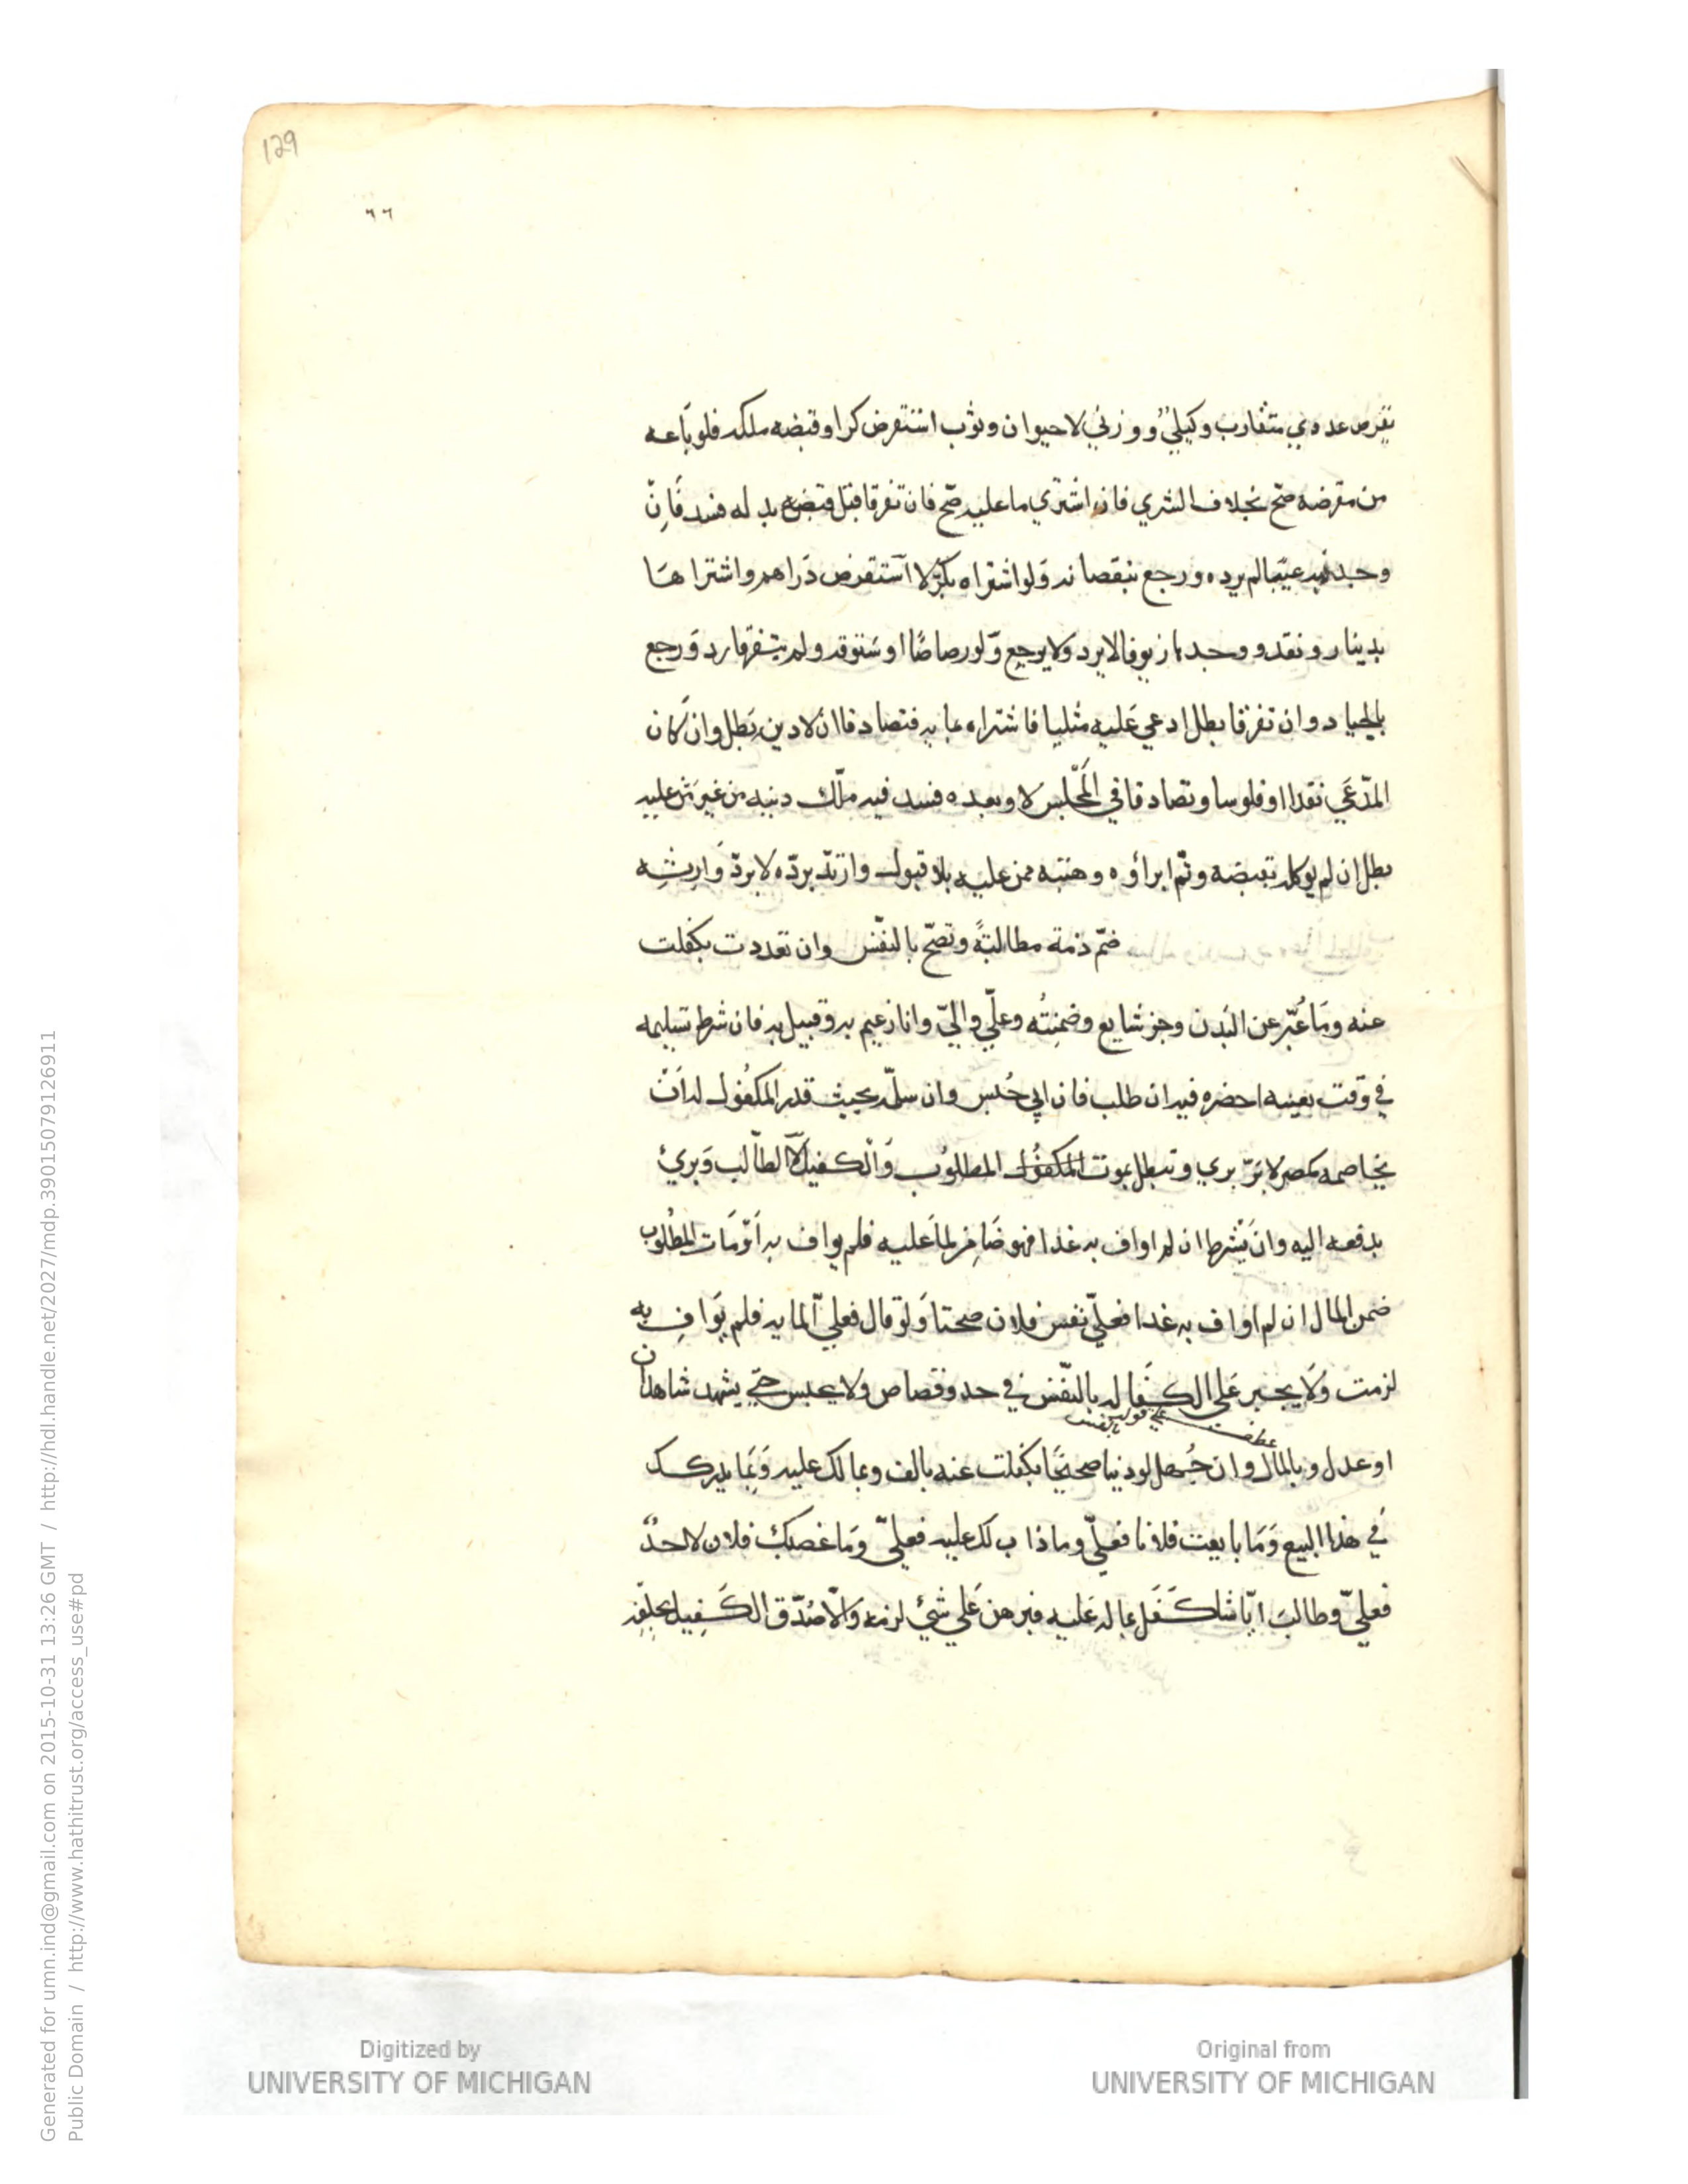 129
٦٦
يقرض عددي متقارب وكيلي ووزني لا حيوان وثوب استقرض كرا وقبضه ملكه فلو باعه
من مقرضه صح بخلاف الشري فان اشتري ما عليه صح فان تفرقا قبل قبض بدله فسد فان
وجد به عيبا لم يرده ورجع بنقصانه ولو اشتراه بكر لا استقرض دراهم واشتراها
بدينار ونقده ووجدها زيوفا لا يرد ولا يرجع ولو رصاصا او ستوقه ولم يتفرقا رد ورجع
بالجياد وان تفرقا بطل ادعي عليه مثليا فاشتراه بمايه فتصادقا ان لا دين بطل وان كان
المدعي نقدا او فلوسا وتصادقا في المجلس لا وبعده فسد فيه ملك دينه من غير من عليه
بطل ان لم يوكله بقبضه وتم ابراؤه وهبته ممن عليه بلا قبول وارتد برده لا برد وارثه
ضم ذمة مطالبة وتصح بالنفس وان تعددت بكفلت
عنه وما عبر عن البدن وجز شايع وضمنته وعلي والي وانا زعيم به وقبيل به فان شرط تسليمه
في وقت بعينه احضره فيه ان طلب فان ابي حبس وان سلم بحيث قدر المكفول له ان
يخاصمه كمصر لا بر بري وتبطل بموت المكفول المطلوب والكفيل لا الطالب وبرئ
بدفعه اليه وان بشرط ان لم اواف به غدا فهو ضامن لما عليه فلم يواف به او مات المطلوب
ضمن المال ان لم اواف به غدا فعلي نفس فلان صحتا ولو قال فعلي المايه فلم يواف به
لزمت ولا يجبر على الكفاله بالنفس في حد وقصاص ولا يحبس حتي يشهد شاهدان
عطف علي قوله بالنفس
او عدل وبالمال وان جهل لو دينا صحيحا بكفلت عنه بالف وبما لك عليه وبما يدركك
في هذا البيع وما بايعت فلانا فعلي وما ذاب لك عليه فعلي وما غصبك فلان لا احد
فعلي وطالب ايا شا كفل بما له عليه فبرهن علي شيئ لزمه والا صدق الكفيل بحلفه
Digitized by
UNIVERSITY OF MICHIGAN
Original from
UNIVERSITY OF MICHIGAN
Generated for umn.ind@gmail.com on 2015-10-31 13:26 GMT / http://hdl.handle.net/2027/mdp.39015079126911
Public Domain / http://www.hathitrust.org/access_use#pd